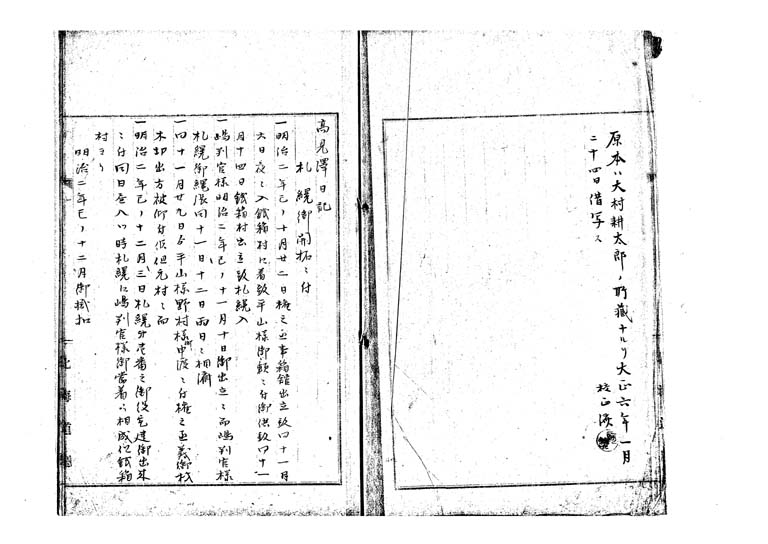 原本ハ大村耕太郎ノ所蔵ナルリ大正六年一月
二十四日借写ス
校正済
高見澤日記
札縨御開拓ニ付
一明治二年巳ノ十月廿二日権之亟事箱舘出立致四十一月
六日夜ニ入銭箱村ニ着致平山様御頼ニ付御供致四十一
月十四日銭箱村出立致札縨入
一嶋判官様明治二年巳ノ十一月十日御出立ニ而嶋判官様
札縨御縄張同十一日十二日両日ニ相済
一同十一月廿九日平山様野村様申渡ニ付権之亟義御材
木却出方被仰付候但元村ニ而
一明治二年巳ノ十二月三日札縨壱番之御役宅建御出来
ニ付同日昼入八時札縨に嶋判官様御當着ニ相成候銭箱
村ヨリ
明治二年巳ノ十二月御扣
北海道